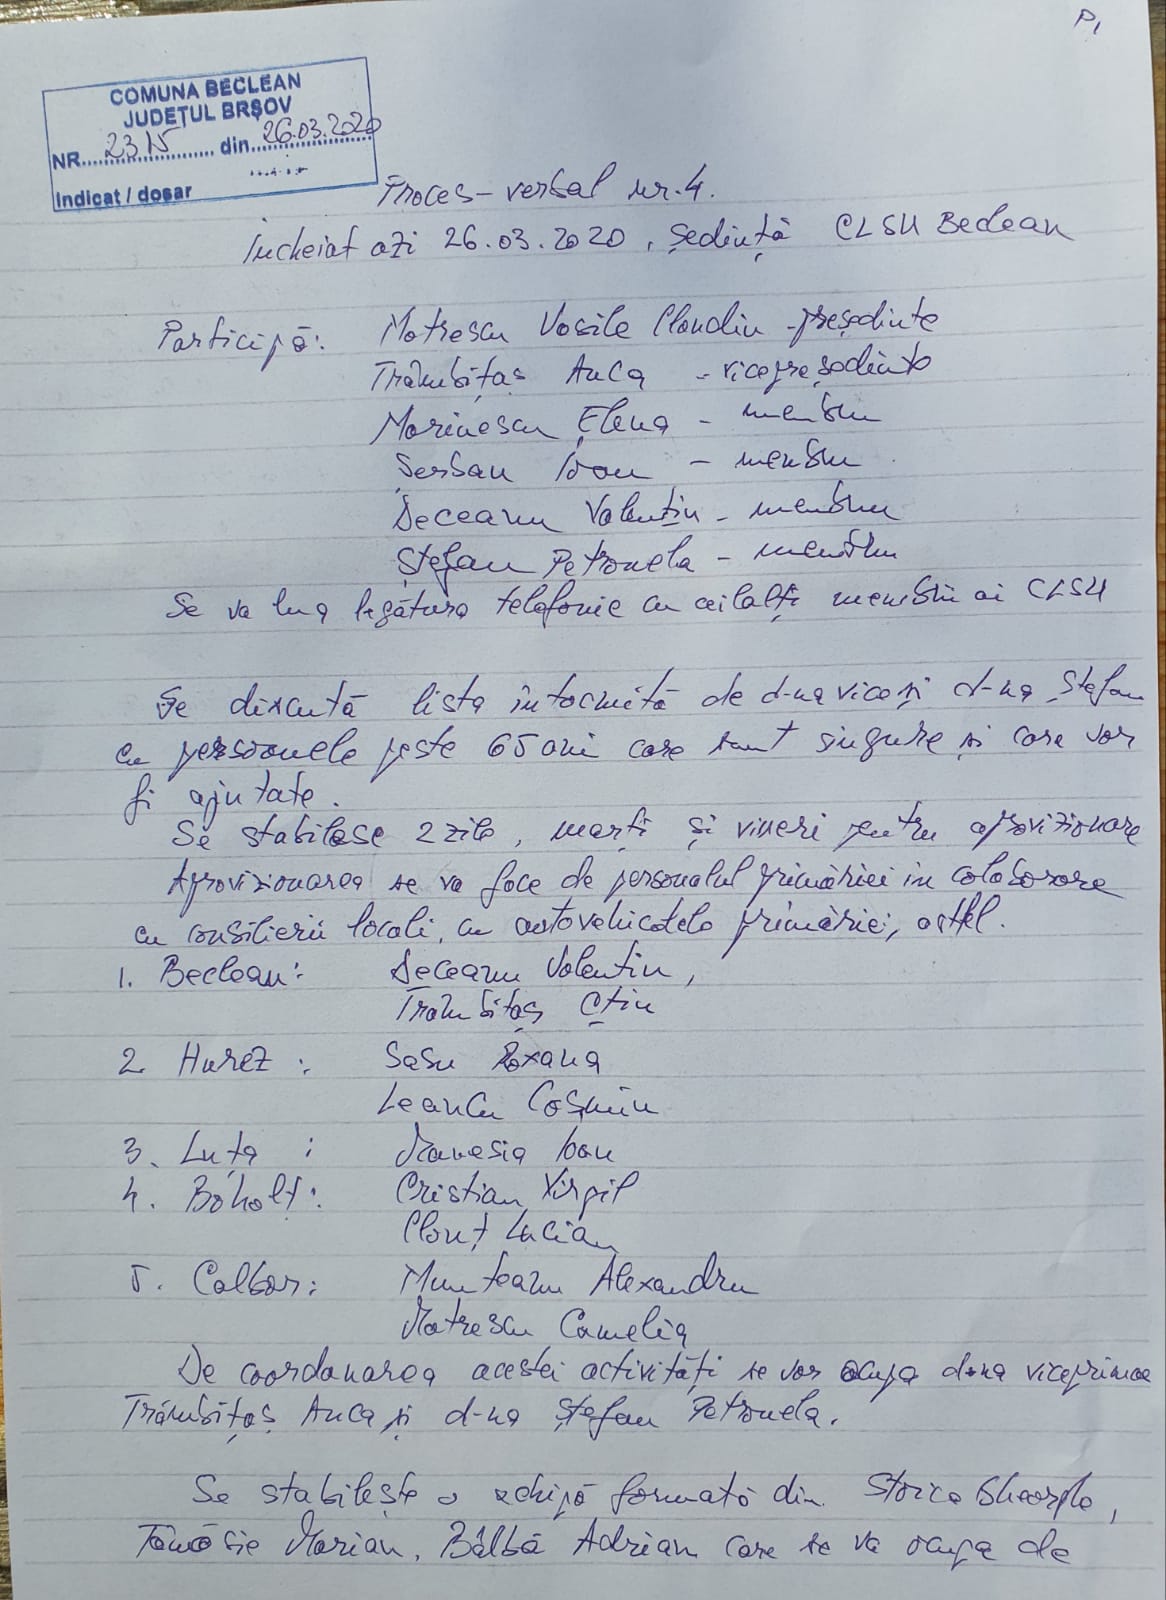 P1
COMUNA BECLEAN
JUDEȚUL BRȘOV
NR. 2315 din 26.03.2020
Indicat / dosar
Proces-verbal nr.4.
Încheiat azi 26.03.2020, ședință CLSU Beclean
Participă: Motrescu Vasile Claudiu - președinte
Trâmbițaș Anca - vicepreședinte
Marinescu Elena - membru
Șerban Ioan - membru
Deceanu Valentin - membru
Ștefan Petronela - membru
Se va lua legătura telefonic cu ceilalți membrii ai CLSU
Se discută lista întocmită de d-na vice și d-na Ștefan
cu persoanele peste 65 ani care sunt singure și care vor
fi ajutate.
Se stabilesc 2 zile, marți și vineri pentru aprovizionare
Aprovizionarea se va face de personalul primăriei in colaborare
cu consilierii locali, cu autovehicolele primăriei, astfel.
1. Beclean: Deceanu Valentin,
Trâmbițaș
2. Hurez: Sasu Roxana
Leancu Cosmin
3. Luța: Manasia Ioan
4. Boholț: Cristian Virgil
Clonț Lucian
5. Calbor: Munteanu Alexandru
Motrescu Camelia
De coordonarea acestei activități se vor ocupa d-na viceprimar
Trâmbițaș Anca și d-na Ștefan Petronela.
Se stabilește o echipă formată din Stoica Gheorghe,
Tănăsie Marian, Bâlbă Adrian care se va ocupa de